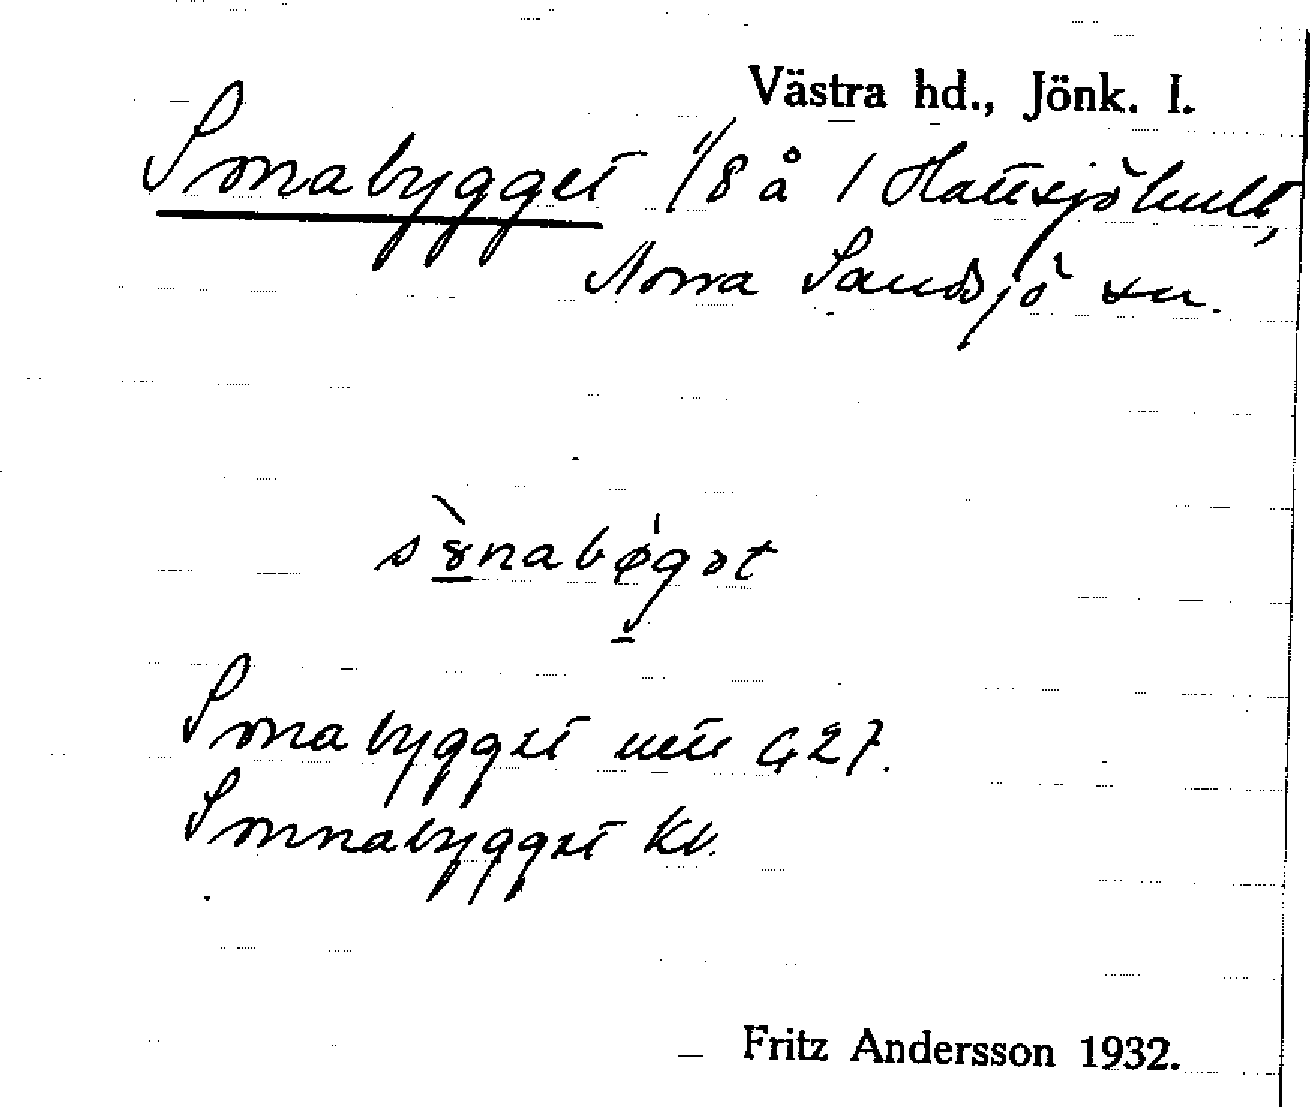 Västra hd., Jönk. l.
Sonabygget 1/8 å 1 Hattsjöhult,
Norra Sandsjö sn.
sònabøgət
Sonabygget uttr G27.
Sonnabygget Kv.
Fritz Andersson 1932.